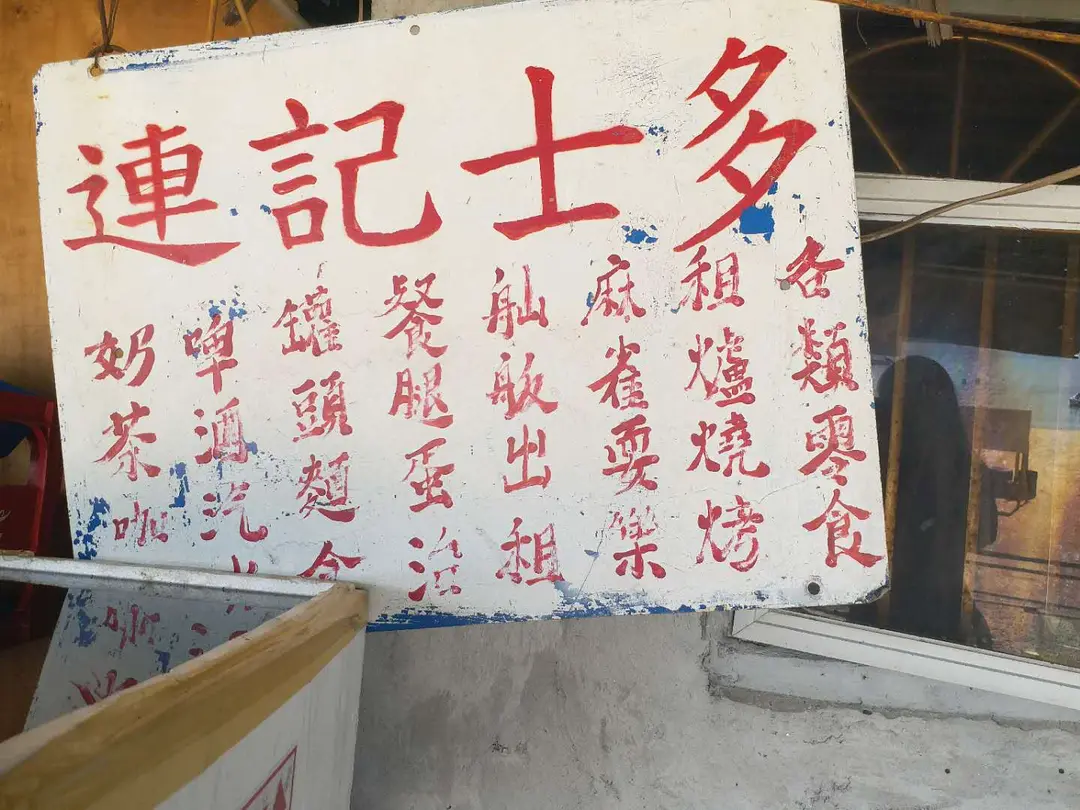 連記士多
各類零食
租爐燒烤
麻雀耍樂
舢舨出租
餐腿蛋治
罐頭麵食
啤酒汽水
奶茶咖